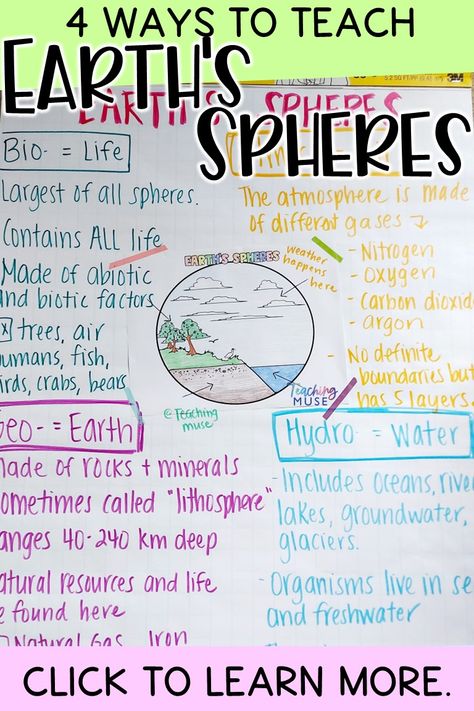 4 WAYS TO TEACH
EARTH'S
SPHERES
EARTH'S SPHERES
Bio- = Life
Largest of all spheres.
Contains ALL life
Made of abiotic
and biotic factors
trees, air
umans, fish,
irds, crabs, bears
The atmosphere is made
of different gases
- Nitrogen
- Oxygen
- Carbon dioxid
- argon
- No definite
boundaries but
has 5 layers.
EARTH'S SPHERES
Weather
happens
here
Teaching
MUSE
@Teaching
muse
Geo- = Earth
Made of rocks + minerals
sometimes called "lithosphere"
anges 40-240 km deep
atural resources and life
e found here
Natural Gas Iron
Hydro- = Water
- Includes oceans, rive
lakes, groundwater,
glaciers.
- Organisms live in se
and freshwater
CLICK TO LEARN MORE.